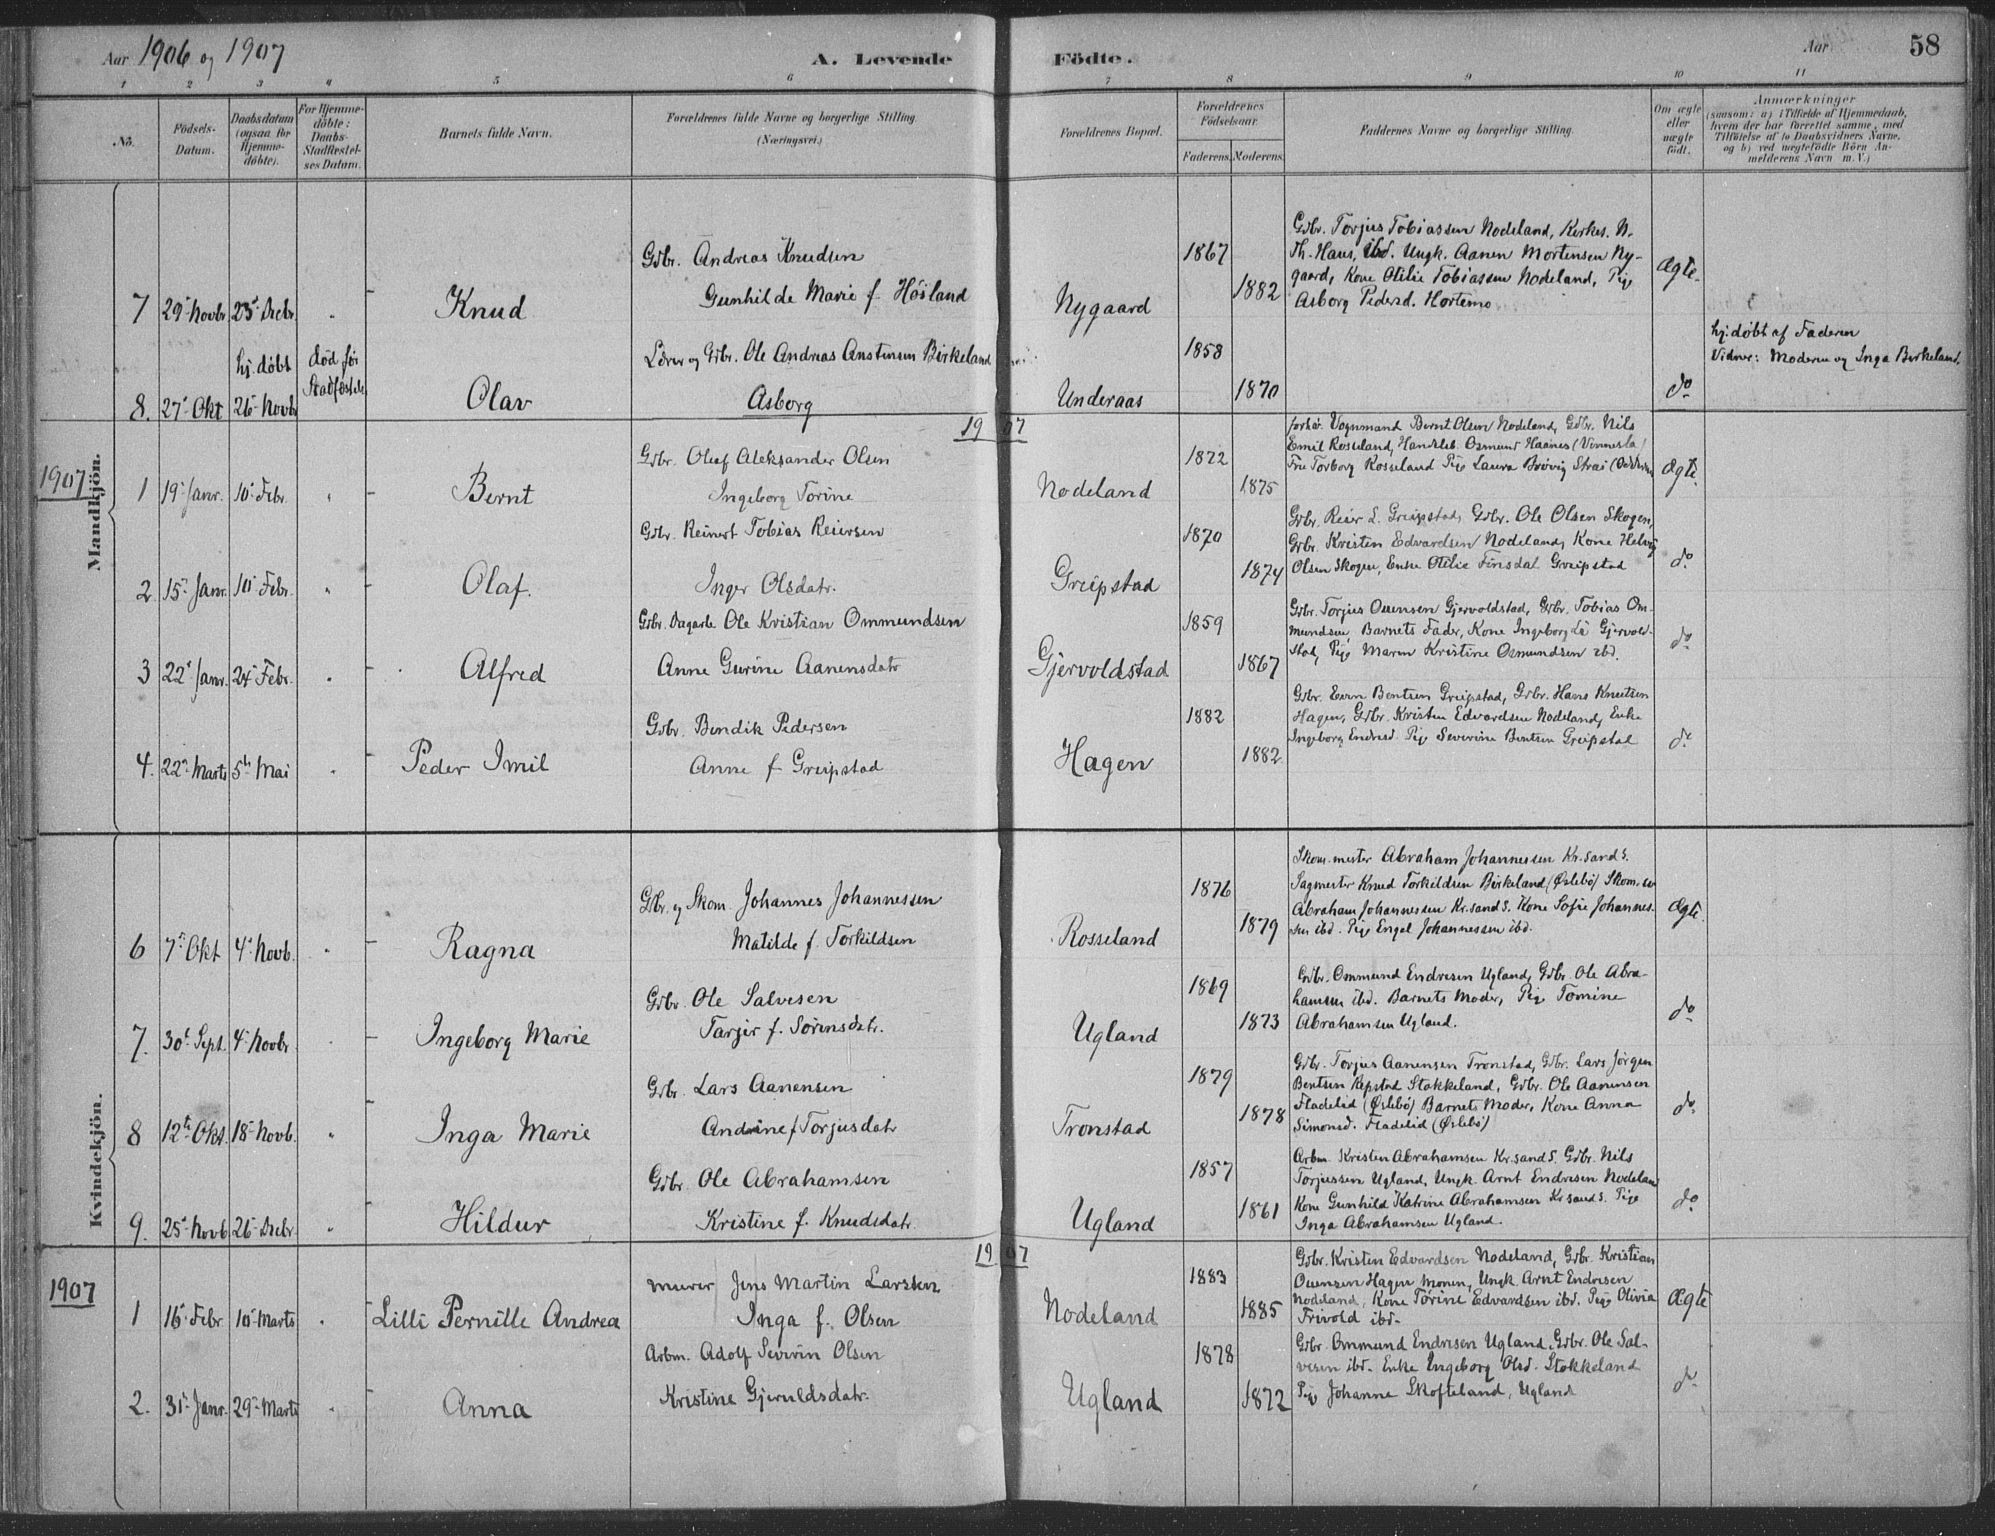 Aar 1906 og 1907
A. Levende Födte.
Aar
58
1 2 3 4 5 6 7 8 9 10 11
No.
Födsels-Datum.
Daabsdatum (ogsaa for Hjemmedöbte).
For Hjemmedöbte: Daabs-Stadfæstelses Datum.
Barnets fulde Navn.
Forældrenes fulde Navne og borgerlige Stilling (Næringsvei.)
Forældrenes Bopæl.
Forældrenes Födselsaar.
Faderens. Moderens.
Faddernes Navne og borgerlige Stilling
Om ægte eller uægte født.
Anmærkninger
(saasom: a) i Tilfælde af Hjemmedaab, hvem der har forrettet samme, med Tilföielse af to Daabsvidners Navne, og b) ved uægtefödte Börn Anmelderens Navn m. V.)
Mandkjön.
7 29de Novbr. 23de Decbr. " Knud
Gdbr. Andreas Knudsen
Gunhilde Marie f. Høsland
Nygaard 1867 1882
Gdbr. Torjus Tobiassen Nodeland, Kirkes. N.
Th. Haus, ibd. Ungk. Aanen Mortensen Ny-
gaard, Kone Otilie Tobiassen Nodeland, Pige
Asborg Pedersd. Hortemo
Ægte.
8. 27de Okt hj. døbt 26de Novb død før Stadfæstelse Olav
Lærer og Gdbr. Ole Andreas Anstensen Birkeland
Asborg
Underaas 1858 1870
do
hj. døbt af Faderen
Vidner: Moderen og Inga Birkeland.
1907
1907
1 19de Janr. 10de Febr. " Bernt
Gdbr. Olaf Aleksander Olsen
Ingeborg Torine
Nodeland 1872 1875
forhv. Vognmand Bernt Olsen Nodeland, Gdbr. Nils
Emil Rosseland, Handelsb. Osmund Haanes (Vennesla)
Fru Torborg Rosseland Pige Laura Brøvig Strai
Ægte.
2 15de Janr. 10de Febr. " Olaf.
Gdbr. Reinert Tobias Reiersen
Inger Olsdatr.
Greipstad 1870 1874
Gdbr. Reier L. Greipstad, Gdbr. Ole Olsen Skogen,
Gdbr. Kristen Edvardsen Nodeland, Kone Helvig
Olsen Skogen, Enke Otilie Finsdal Greipstad
do
3 22de Janr. 24de Febr. " Alfred
Gdbr. Dagarb. Ole Kristian Ommundsen
Anne Gurine Aanensdatr
Gjervoldstad 1859 1867
Gdbr. Torjus Ouensen Gjervoldstad, Gdbr. Tobias Om-
mundsen, Barnets Fader, Kone Ingeborg Gjervold-
stad, Pige Maren Kristine Osmundsen ibd.
do
4. 22de Marts 5te Mai " Peder Imil
Gdbr. Bendik Pedersen
Anne f Greipstad
Hagen 1882 1882
Gdbr. Even Bentsen Greipstad, Gdbr. Hans Knutsen
Hagen, Gdbr. Kristen Edvardsen Nodeland, Enke
Ingeborg Endresd. Pige Severine Bentsen Greipstad
do
Kvindekjön.
6 7de Okt 4de Novb. " Ragna
Gdbr. og Skom. Johannes Johannessen
Matilde f. Torkildsen
Rosseland 1876 1879
Skom. mester Abraham Johannessen Kr.sand S.
Sagmester Knud Torkildsen Birkeland (Øslebö) Skom. sv
Abraham Johannessen Kr.sand S. Kone Sofie Johannes-
sen ibd. Pige Engel Johannessen ibd.
Ægte.
7. 30te Sept. 4de Novbr. Ingeborg Marie
Gdbr. Ole Salvesen
Tarjer f. Sørensdatr.
Ugland 1869 1873
Gdbr. Ommund Endresen Ugland, Gdbr. Ole Abra-
hamsen ibd. Barnets Moder, Pige Tomine
Abrahamsen Ugland.
do
8 12te Okt. 18de Novb. " Inga Marie
Gdbr. Lars Aanensen
Andrine f Torjusdatr
Tronstad 1879 1878
Gdbr. Torjus Aanensen Tronstad, Gdbr. Lars Jørgen
Bentsen Repstad Stokkeland, Gdbr. Ole Aanensen
Fladelid (Øslebö) Barnets Moder, Kone Anna
Simonsd. Fladelid (Øslebö)
do.
9. 25de Novb. 26de Decbr. " Hildur
Gdbr. Ole Abrahamsen
Kristine f. Knudsdatr.
Ugland 1857 1861
Arbm. Kristen Abrahamsen Kr.sand S. Gdbr. Nils
Torjussen Ugland, Ungk. Arnt Endresen Nodeland
Kone Gunhild Katrine Abrahamsen Kr.sand S. Pige
Inga Abrahamsen Ugland.
do
1907
1907
1 16de Febr. 10de Marts " Lilli Pernille Andrea
Murer Jens Martin Larssen
Inga f. Olsen
Nodeland 1883 1885
Gdbr. Kristen Edvardsen Nodeland, Gdbr. Kristian
Ouensen Hagen Monen, Ungk. Arnt Endresen
Nodeland, Kone Torine Edvardsen ibd. Pige Olivia
Frivold ibd.
Ægte
2. 31te Janr. 29de Marts " Anna
Arbm. Adolf Severin Olsen
Kristine Gjeruldsdatr.
Ugland 1878 1872
Gdbr. Ommund Endresen Ugland, Gdbr. Ole Sal-
vesen ibd. Enke Ingeborg Olsd. Stokkeland
Pige Johanne Skofteland, Ugland
do